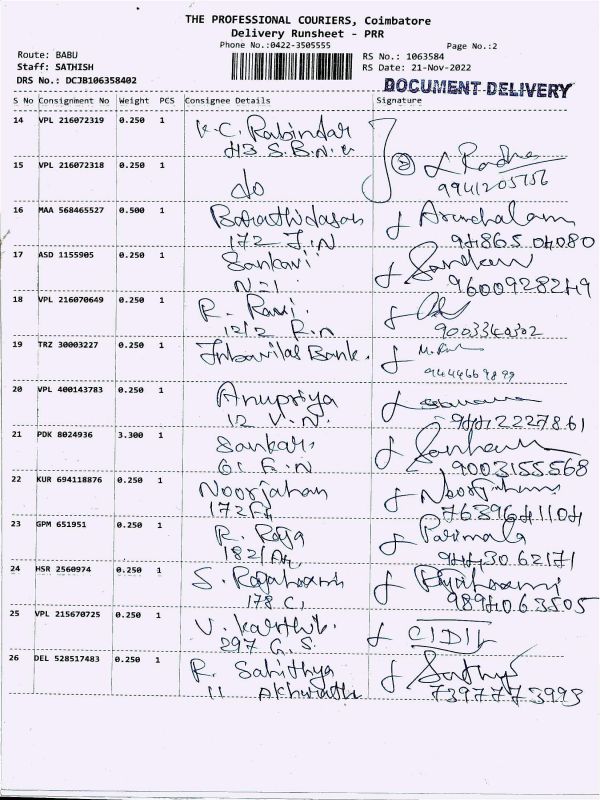 THE PROFESSIONAL COURIERS, Coimbatore
Delivery Runsheet - PRR
Phone No.:0422-3505555 Page No.:2
Route: BABU RS No.: 1063584
Staff: SATHISH RS Date: 21-Nov-2022
DRS No.: DCJB106358402
DOCUMENT DELIVERY
S No Consignment No Weight PCS Consignee Details Signature
14 VPL 216072319 0.250 1 K.C. Rabindar
113 S.B.N.
15 VPL 216072318 0.250 1 do Radha
9941205756
16 MAA 568465527 0.500 1 Barathidasan Arunchalam
172 J.N 9486504080
17 ASD 1155905 0.250 1 Sankari
N21 9600928249
18 VPL 216070649 0.250 1 R. Ravi
12/2 R.n 9003340302
19 TRZ 30003227 0.250 1 Bank.
9444669899
20 VPL 400143783 0.250 1 Anupriya
12 V.N. 9442227861
21 PDK 8024936 3.300 1 Sankar
9003155568
22 KUR 694118876 0.250 1 Noorjahan Noorjahan
172 7639641104
23 GPM 651951 0.250 1 R. Raja Parimala
182/A 9443062171
24 HSR 2560974 0.250 1 S.
178 C, 9894063505
25 VPL 215670725 0.250 1 V. Karthik.
297 G.S
26 DEL 528517483 0.250 1 R. Sahithya
11 7397773993